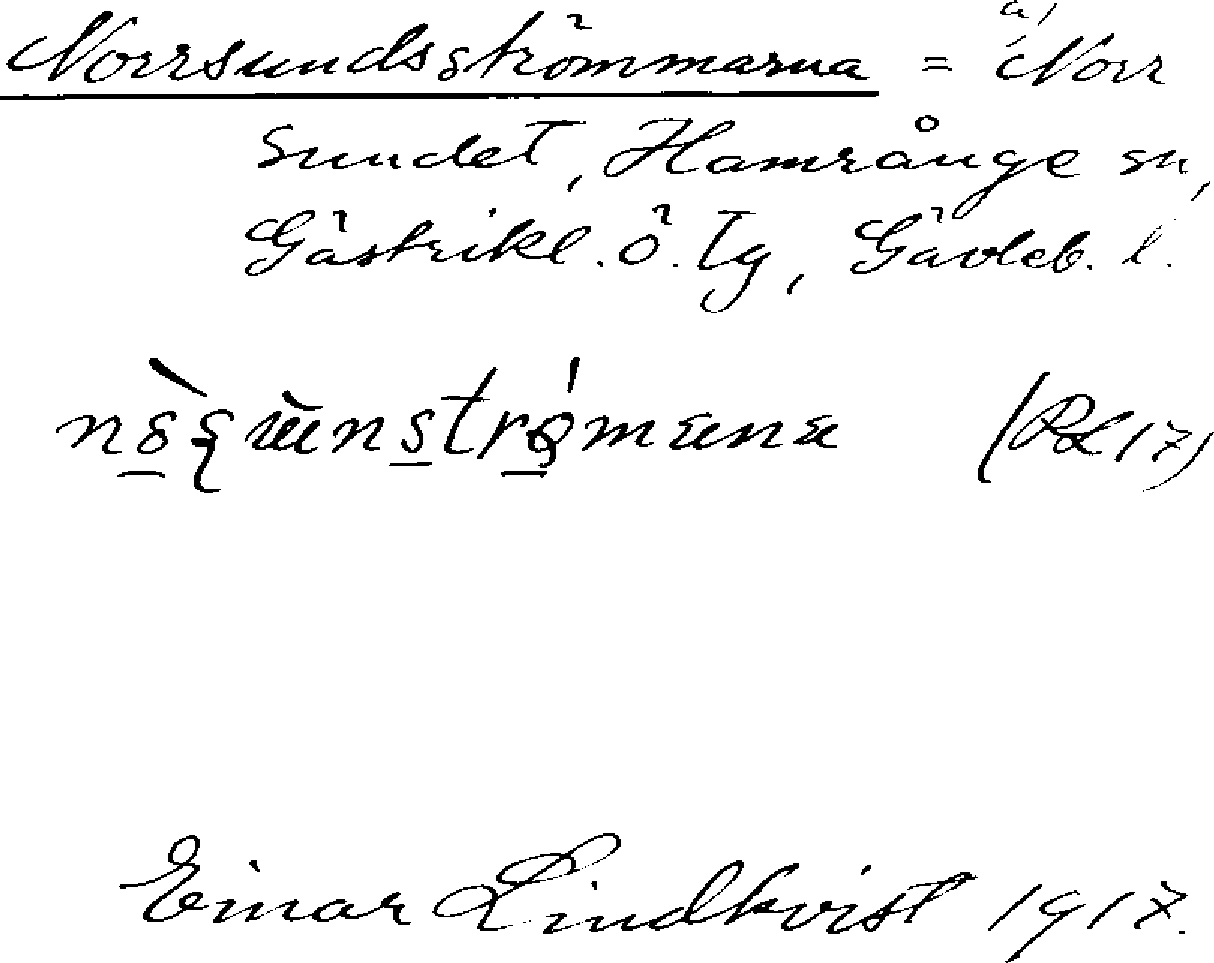 Norrsundsströmmarna = a) Norr
sundet, Hamrånge sn,
Gästrikl. ö. tg, Gävleb. l.
Einar Lindkvist 1917.